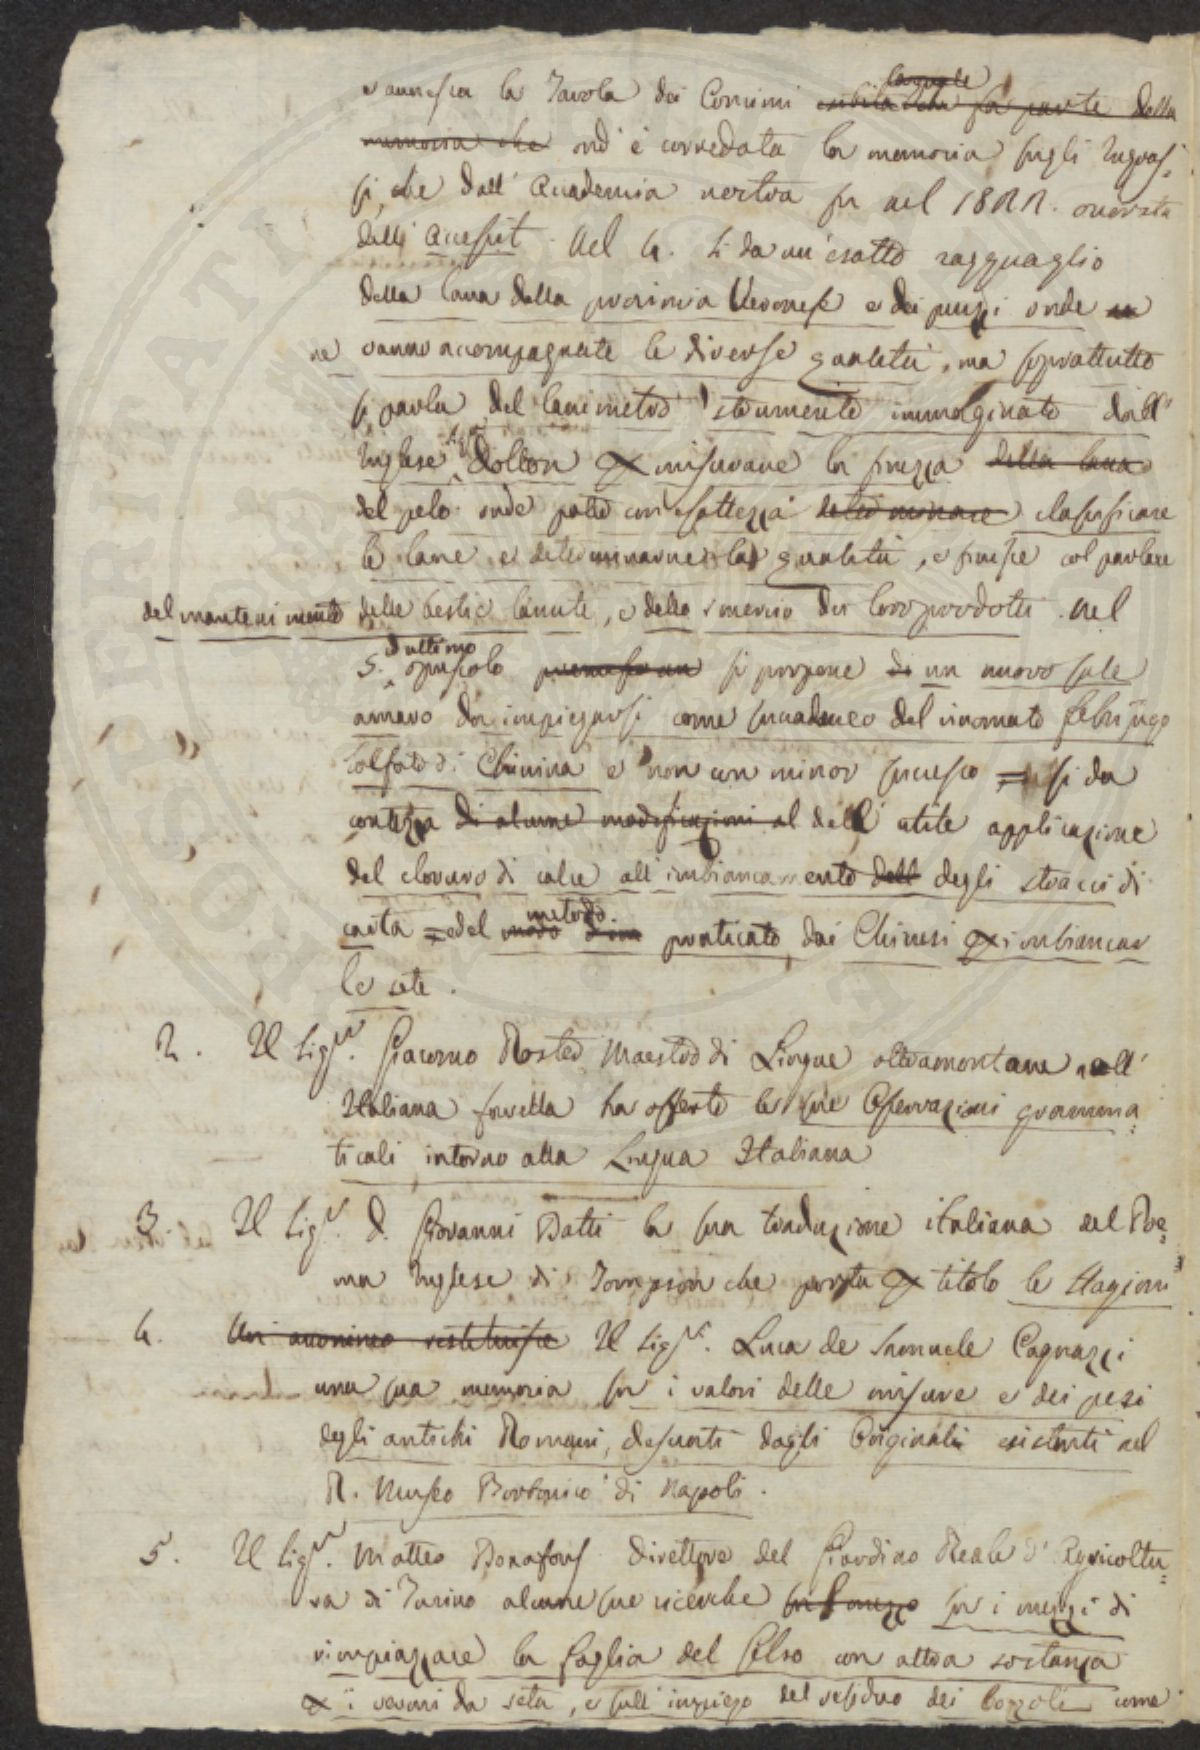 e annessa la Tavola dei Concimi esibita laquale fa parte della
memoria che ond' è corredata la memoria sugli Ingras-
si, che dall' Accademia nostra fu nel 1822. onorata
dell' Accessit. Nel 4. si da un' esatto ragguaglio
della lana della provincia Veronese e dei prezzi onde
ne vanno accompagnate le diverse qualità, ma soprattutto
si parla del lanimetro stromento immaginato dall'
Inglese Dollon per misurare la finezza della lana
del pelo onde poter con esattezza determinare classificare
le lane e determinarne la qualità, e finisce col parlare
del mantenimento delle bestie lanute, e dello smercio dei loro prodotti. Nel
5. d'ultimo opuscolo si propone di un nuovo sale
amaro da impiegarsi come succedaneo del rinomato febrifugo
solfato di Chinina e non con minor successo = si da
contezza di alcune modificazioni al dell' utile applicazione
del cloruro di calce all' imbiancamento dell degli stracci di
carta = e del modo metodo praticato dai Chinesi per imbiancar
le sete.
2. Il Sigr. Giacomo Rosted Maestro di Lingue oltramontane nell'
Italiana favella ha offerto le sue Osservazioni gramma=
ticali intorno alla Lingua Italiana
3. Il Sigr. D. Giovanni Batti la sua traduzione italiana del Poe=
ma Inglese di Tompson che porta per titolo le Stagioni
4. Un anonimo restituisce Il Sigr. Luca de Samuele Cagnazzi
una sua memoria su i valori delle misure e dei pesi
degli antichi Romani, desunti dagli Originali esistenti nel
R. Museo Borbonico di Napoli.
5. Il Sigr. Matteo Bonafous Direttore del Giardino Reale d' Agricoltu=
ra di Torino alcune sue ricerche su i mezzi di
rimpiazzare la foglia del Gelso con altra sostanza
per i vermi da seta, e sull' impiego del residuo dei bozzoli come